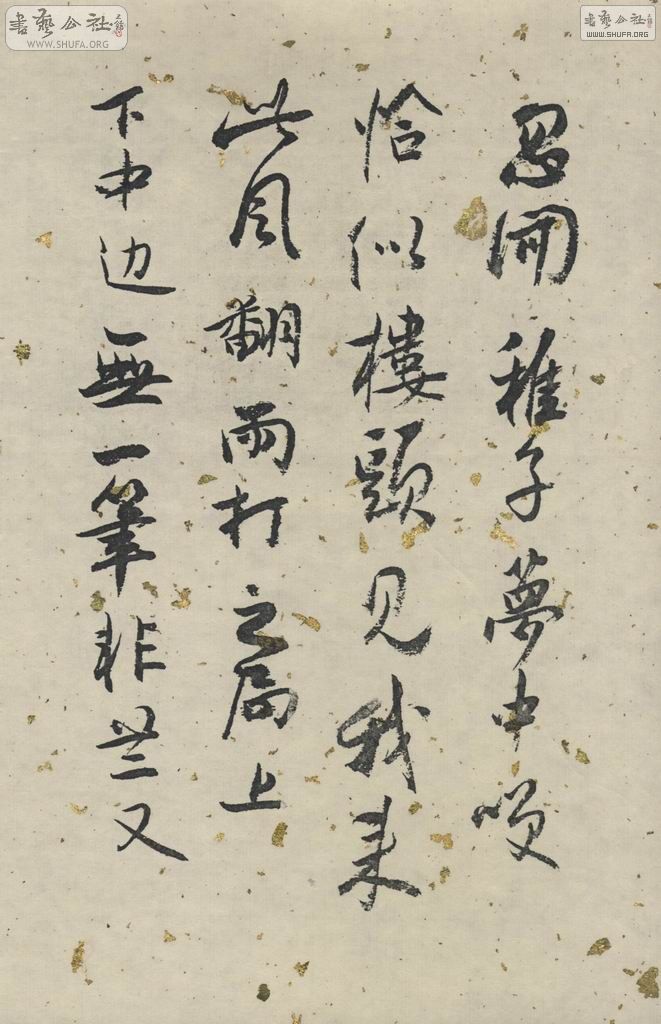 忽闻稚子夢中唤
恰似樓頭見我来
此風翻雨打之局上
下中边無一筆非世又
書藝公社
WWW.SHUFA.ORG
書藝公社
WWW.SHUFA.ORG